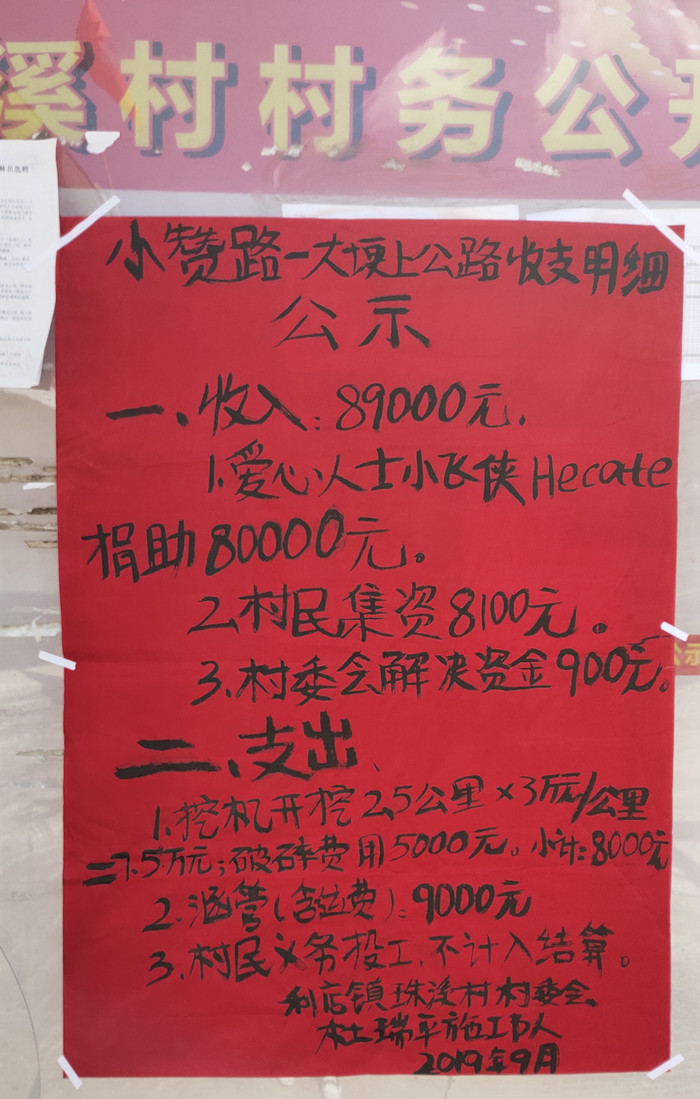 溪村村务公开
小赞路一大埂上公路收支明细
公示
一、收入：89000元.
1.爱心人士小飞侠Hecate
捐助80000元。
2.村民集资8100元。
3.村委会解决资金900元。
二、支出、
1.挖机开挖2.5公里×3万元/公里
=7.5万元；破碎费用5000元。小计：8000元
2.涵管(含运费)：9000元
3.村民义务投工，不计入结算。
利店镇珠溪村村委会
杜瑞平施工队人
2019年9月